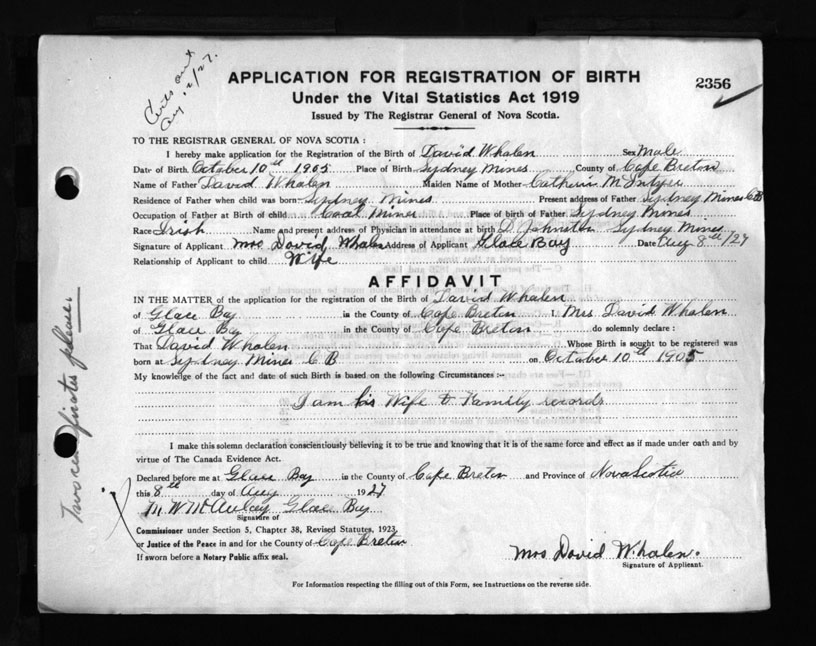 Certs out
Aug 12/27.
APPLICATION FOR REGISTRATION OF BIRTH
2356
Under the Vital Statistics Act 1919
Issued by The Registrar General of Nova Scotia.
TO THE REGISTRAR GENERAL OF NOVA SCOTIA :
I hereby make application for the Registration of the Birth of David Whalen Sex Male
Date of Birth October 10th 1905 Place of Birth Sydney Mines County of Cape Breton
Name of Father David Whalen Maiden Name of Mother Catherin McIntyre
Residence of Father when child was born Sydney Mines Present address of Father Sydney Mines CB
Occupation of Father at Birth of child Coal Miner Place of birth of Father Sydney Mines
Race Irish Name and present address of Physician in attendance at birth D. Johnston Sydney Mines
Signature of Applicant Mrs David Whalen Address of Applicant Glace Bay Date Aug 8th/27
Relationship of Applicant to child Wife
AFFIDAVIT
IN THE MATTER of the application for the registration of the Birth of David Whalen
of Glace Bay in the County of Cape Breton I, Mrs. David Whalen
of Glace Bay in the County of Cape Breton do solemnly declare :
That David Whalen Whose Birth is sought to be registered was
born at Sydney Mines C B on October 10th 1905
My knowledge of the fact and date of such Birth is based on the following Circumstances :—
I am his Wife & Family records
I make this solemn declaration conscientiously believing it to be true and knowing that it is of the same force and effect as if made under oath and by
virtue of The Canada Evidence Act.
Declared before me at Glace Bay in the County of Cape Breton and Province of Nova Scotia
this 8th day of Aug 1927
M. W. McAulay Glace Bay
Signature of
Commissioner under Section 5, Chapter 38, Revised Statutes, 1923,
or Justice of the Peace in and for the County of Cape Breton
If sworn before a Notary Public affix seal.
Mrs David Whalen.
Signature of Applicant.
For Information respecting the filling out of this Form, see Instructions on the reverse side.
Two certificates please.